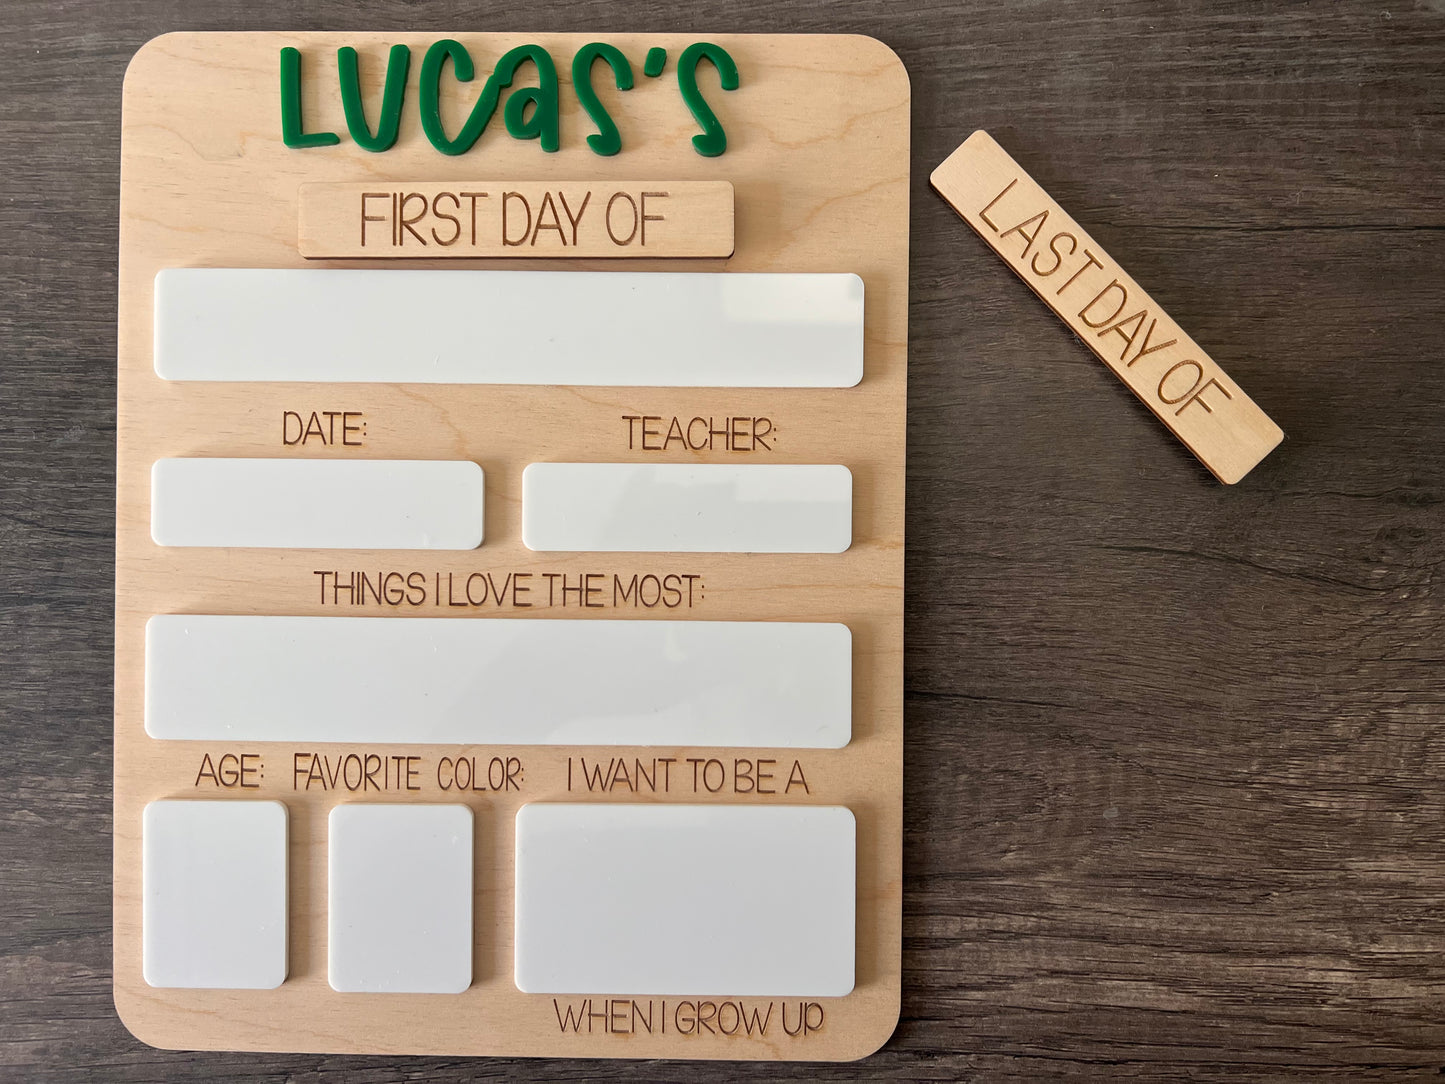 LUCAS'S
FIRST DAY OF
LAST DAY OF
DATE: TEACHER:
THINGS I LOVE THE MOST:
AGE: FAVORITE COLOR: I WANT TO BE A
WHEN I GROW UP